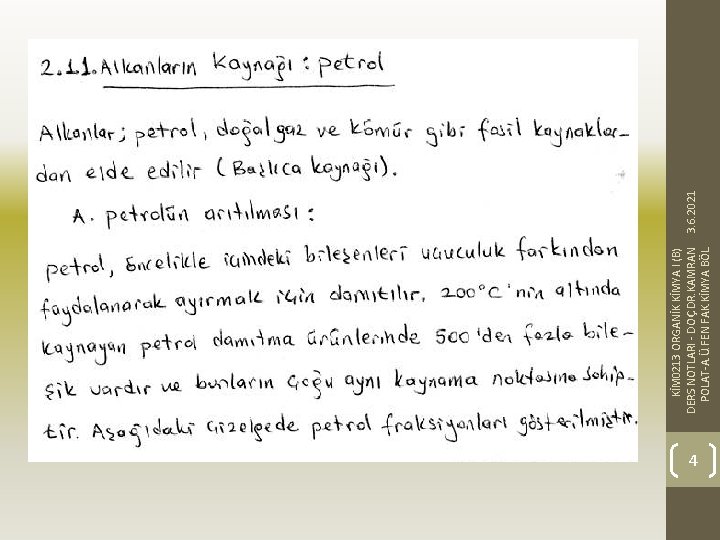 2.1.1. Alkanların Kaynağı : petrol
Alkanlar; petrol, doğal gaz ve kömür gibi fosil kaynaklar-
dan elde edilir (Başlıca kaynağı).
A. petrolün arıtılması :
petrol, öncelikle içindeki bileşenleri uçuculuk farkından
faydalanarak ayırmak için damıtılır. 200°C'nin altında
kaynayan petrol damıtma ürünlerinde 500'den fazla bile-
şik vardır ve bunların çoğu aynı kaynama noktasına sahip-
tir. Aşağıdaki çizelgede petrol fraksiyonları gösterilmiştir.
KİM0213 ORGANİK KİMYA I (B)
DERS NOTLARI - DOÇ.DR.KAMRAN
POLAT-A.Ü.FEN FAK KİMYA BÖL
3.6.2021
4